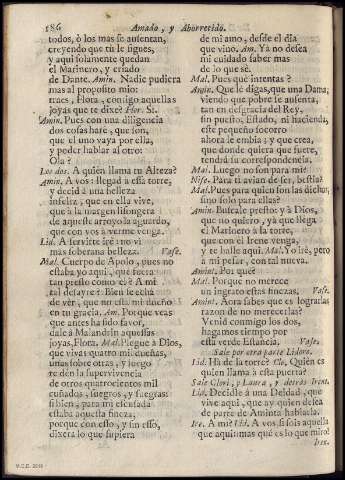 186 Amado, y Aborrecido.
todos, ò los mas se ausentan,
creyendo que tù le sigues,
y aqui solamente quedan
el Marinero, y criado
de Dante. Amin. Nadie pudiera
mas al proposito mio:
traes, Flora, contigo aquellas
joyas que te dixe? Flor. Si.
Amin. Pues con una diligencia
dos cosas harè, que son,
que el uno vaya por ella,
y poder hablar al otro:
Ola?
Los dos. A quien llama tu Alteza?
Amin. A vos: llegad à essa torre,
y decid à una belleza
infeliz, que en ella vive,
que à la margen lisongera
de aqueste arroyo la aguardo,
que con vos à verme venga.
Lid. A servirte irè: no vi
mas soberana belleza. Vase.
Mal. Cuerpo de Apolo, pues no
estaba yo aqui, que fuera
tan presto como èl? A mi
tal desayre! Bien se echa
de vèr, que no està mi dueño
en tu gracia. Am. Porque veas
que antes ha sido favor,
dale à Malandrin aquessas
joyas, Flora. Mal. Plegue à Dios,
que vivas quatro mil dueñas,
unas sobre otras, y luego
te dèn la supervivencia
de otros quatrocientos mil
cuñados, suegros, y suegras:
si bien, para mi escusada
estaba aquessa fineza,
porque con esso, y sin esso,
dixera lo que supiera
de mi amo, desde el dia
que vino. Am. Yà no desea
mi cuidado saber mas
de lo que sè.
Mal. Pues què intentas?
Amin. Que le digas, que una Dama,
viendo que pobre se ausenta,
tan en desgracia del Rey,
sin puesto, Estado, ni hacienda,
este pequeño socorro
ahora le embia; y que crea,
que donde quiera que fuere,
tendrà su correspondencia.
Mal. Luego no son para mi?
Nise. Para ti avian de ser, bestia?
Mal. Pues para quien son las dichas,
sino solo para ellas?
Amin. Buscale presto: y à Dios,
que no quiero, yà que llega
el Marinero à la torre,
que con èl Irene venga,
y te halle aqui. Mal. Yo irè, pero
à mi pesar, con tal nueva.
Amint. Por què?
Mal. Porque no merece
un ingrato estas finezas. Vase.
Amint. Aora sabes que es lograrlas
razon de no merecerlas?
Venid conmigo los dos,
hagamos tiempo por
esta verde Estancia. Vanse.
Sale por otra parte Lidoro.
Lid. Ha de la torre? Clo. Quien es
quien llama à esta puerta?
Sale Clori, y Laura, y detràs Iren.
Lid. Decidle à una Deidad, que
vive aqui, que ay quien desea
de parte de Aminta hablarla.
Ire. A mi? Lid. A vos, si sois aquella
que aqui: mas què es lo que miro!
Iren.